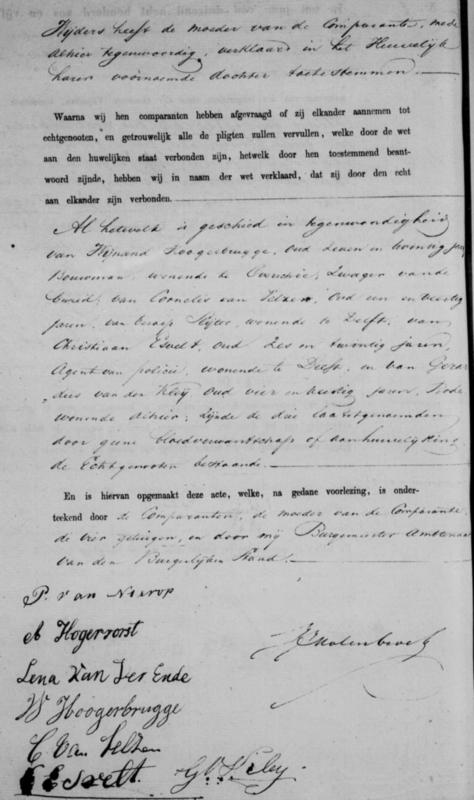 heeft de moeder van de Comparante, mede
alhier tegenwoordig, verklaard in het Huwelijk
harer voornoemde dochter toetestemmen.
Waarna wij hen comparanten hebben afgevraagd of zij elkander aannemen tot
echtgenooten, en getrouwelijk alle de pligten zullen vervullen, welke door de wet
aan den huwelijken staat verbonden zijn, hetwelk door hen toestemmend beant-
woord zijnde, hebben wij in naam der wet verklaard, dat zij door den echt
aan elkander zijn verbonden.
Al hetwelk is geschied in tegenwoordigheid
van Wijnand Hoogerbrugge, oud zeven en twintig jaren
Bouwman, wonende te Overschie, Zwager van de
Bruid, van Cornelis van Velzen, oud een en veertig
jaren, van beroep Slijter, wonende te Delft, van
Christiaan Esvelt, oud zes en twintig jaren
Agent van policie, wonende te Delft, en van Gerar-
dus van der Kleij oud vier en veertig jaren, Bode
wonende alhier, zijnde de drie laatstgenoemden
door geene bloedverwantschap of aanhuwelijking
de Echtgenooten bestaande.
En is hiervan opgemaakt deze acte, welke, na gedane voorlezing, is onder-
teekend door de Comparanten, de moeder van de Comparante,
de vier getuigen, en door mij Burgemeester Ambtenaar
van den Burgerlijken Stand.
P. van Nierop
A Hogervorst
Lena Van der Ende
W Hoogerbrugge
C Van Velzen
C Esvelt. G V D Kley.